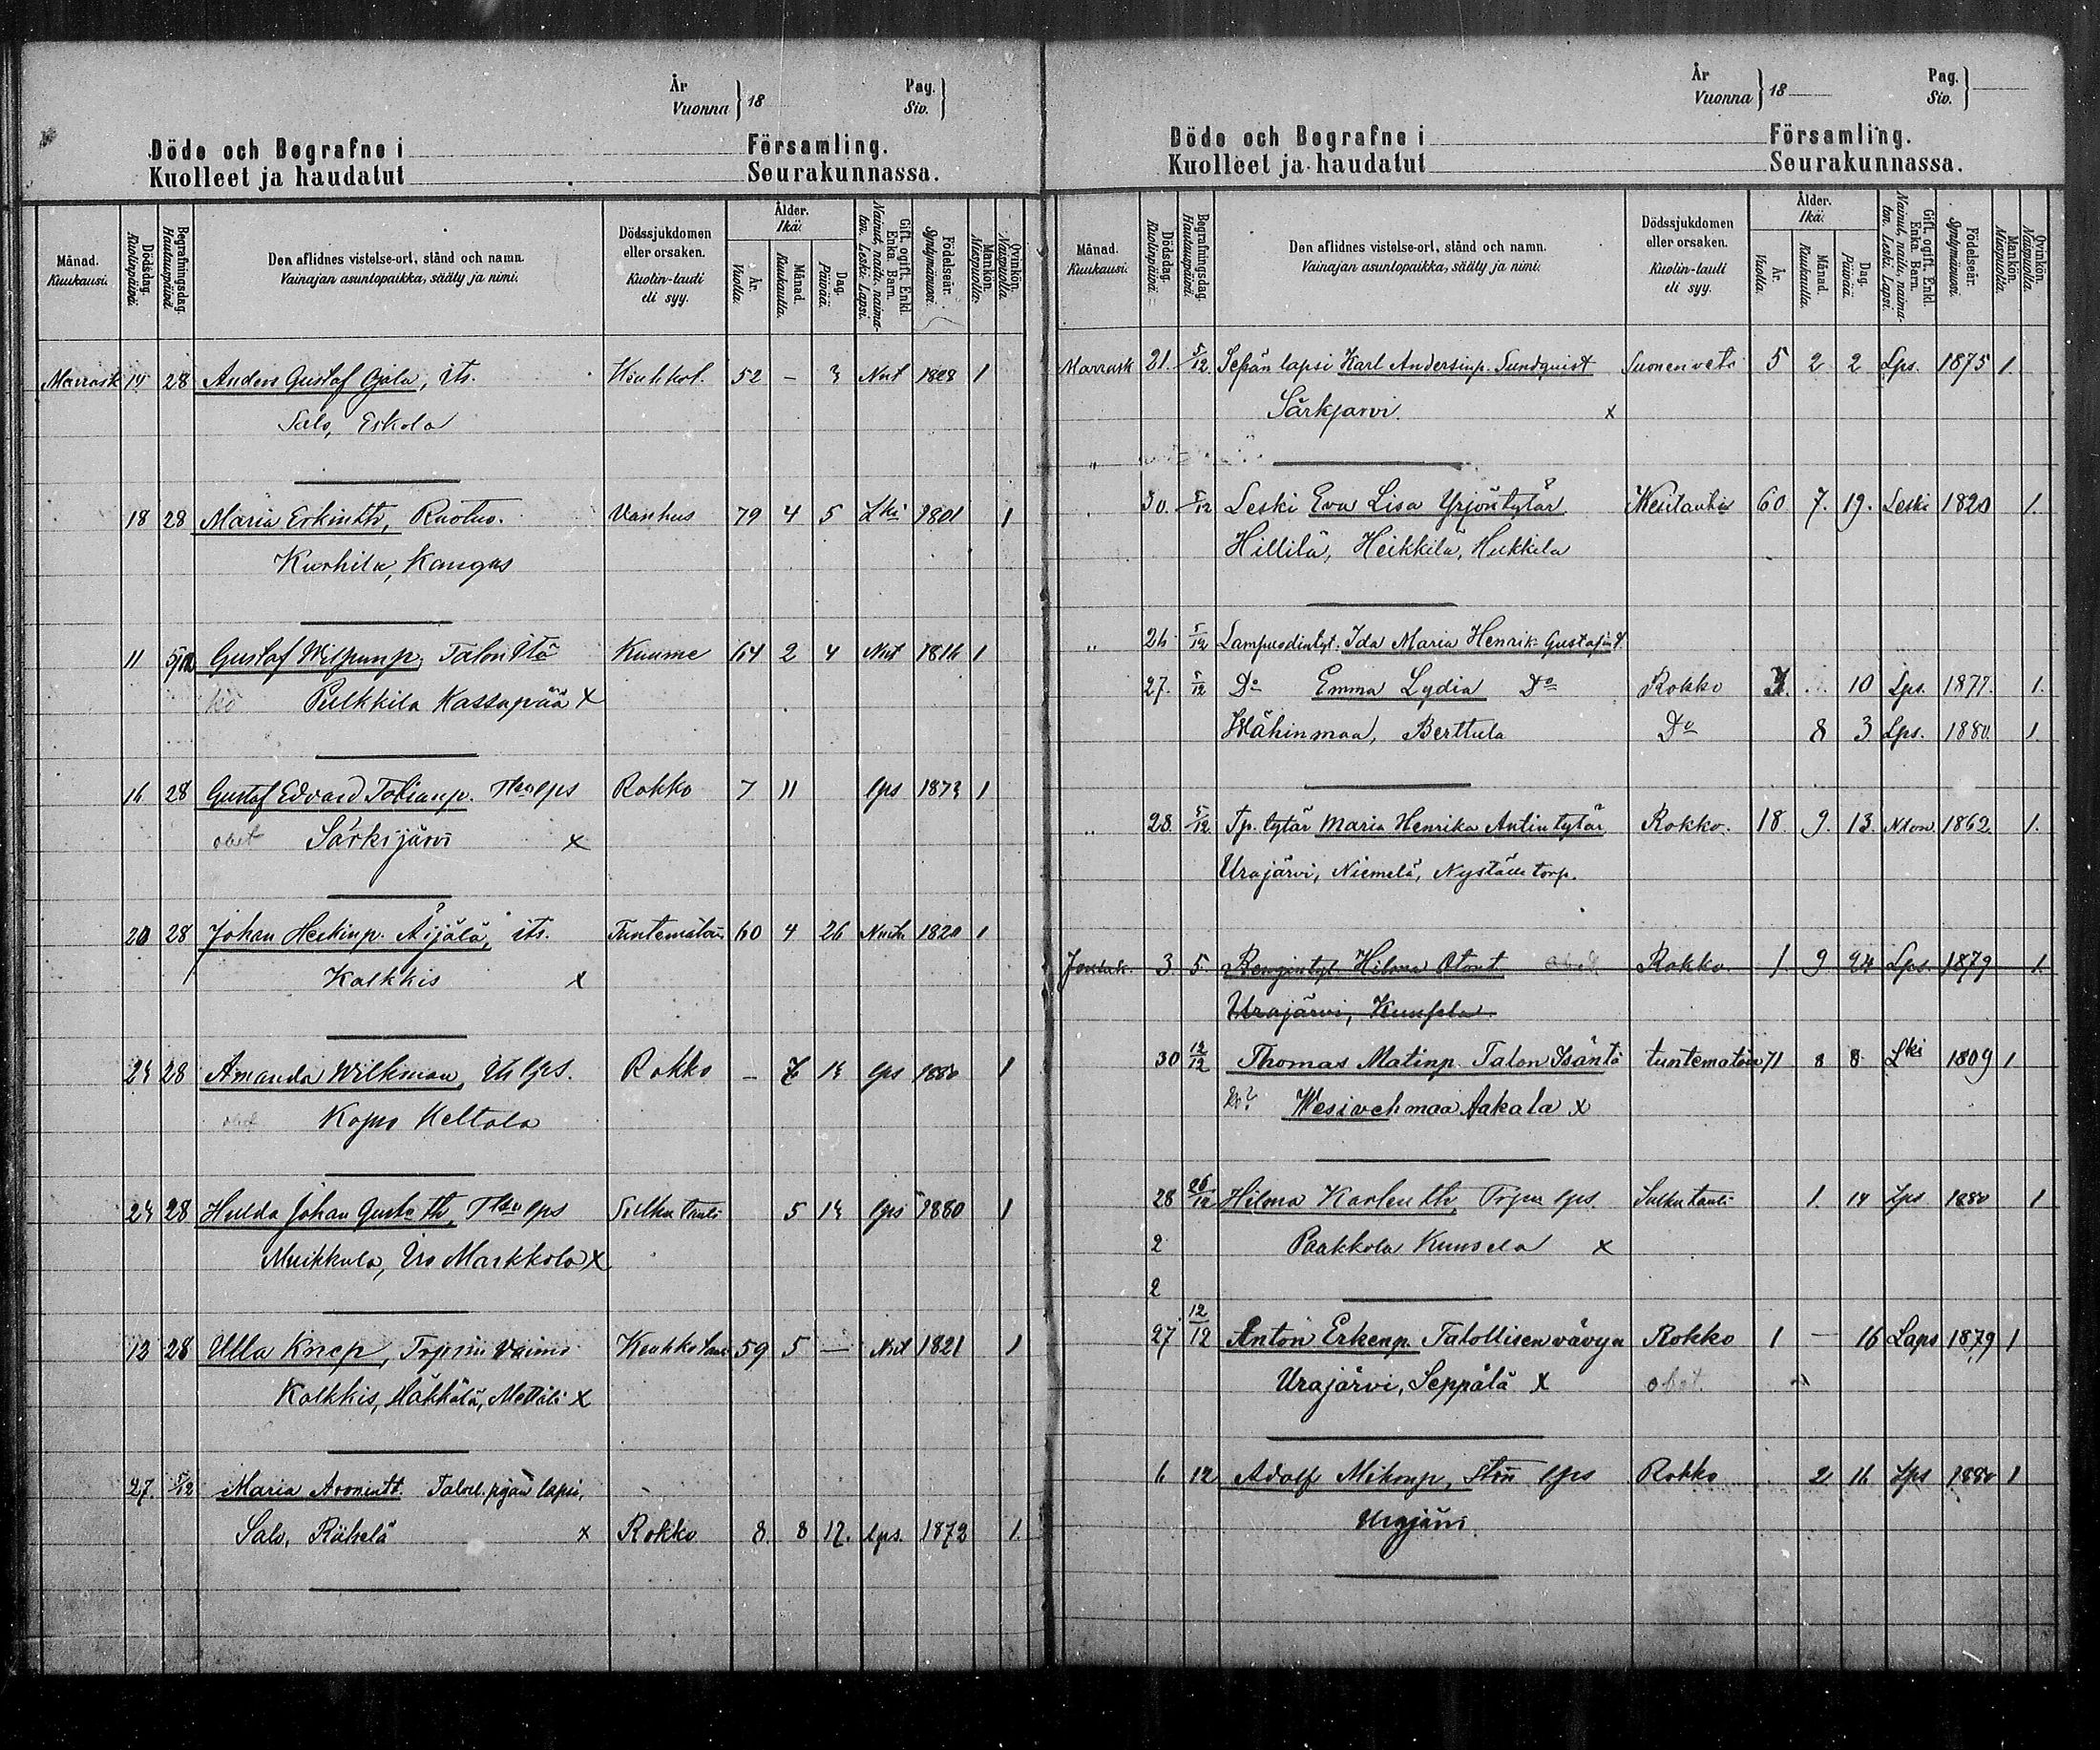 År
Vuonna } 18
Pag.
Siv. }
Döde och Begrafne i Församling.
Kuolleet ja haudatut Seurakunnassa.
Månad. Kuukausi.
Dödsdag. Kuolinpäivä.
Begrafningsdag. Hautauspäivä.
Den aflidnes vistelse-ort, stånd och namn.
Vainajan asuntopaikka, sääty ja nimi.
Dödssjukdomen eller orsaken.
Kuolin-tauti eli syy.
Ålder. Ikä.
År. Vuotta.
Månad. Kuukautta.
Dag. Päivää.
Gift, ogift, Enkl. Enka. Barn.
Nainut, naitu, naimaton. Leski. Lapsi.
Födelseår. Syntymävuosi.
Mankön. Miespuolta.
Qvinkön. Naispuolta.
Marrask 14 28 Anders Gustaf Gjala, its. 52 - 3 Nut 1828 1
Salo, Eskola
18 28 Maria Erkintr, Ruotus. Vanhus 79 4 5 Lki 1801 1
Kurhila, Kangas
11 5/12 Gustaf Wilpunp, Talon Itä Kuume 64 2 4 Nut 1816 1
Pulkkila Kassapää x
16 28 Gustaf Edvard Tobianp. lps Rokko 7 11 lps 1873 1
obet Särkijärvi x
20 28 Johan Heikinp. Äijälä, its. Tuntematoin 60 4 26 1820 1
Kalkkis x
24 28 Amanda Wilkman, Its lps. Rokko - 7 14 lps 1880 1
Keltala
24 28 Hulda Johan Gusta th, lps Sulku tauti 5 14 lps 1880 1
Muikkula, Iso Markkola x
13 28 Ulla Knep, Vaimo 59 5 - Nut 1821 1
Kalkkis, Häkkälä, Mattila x
27. 5/12 Maria Aronintt. Talol. pijan lapsi,
Salo, x Rokko 8. 8 12. Lps. 1872 1.
År
Vuonna } 18
Pag.
Siv. }
Döde och Begrafne i Församling.
Kuolleet ja haudatut Seurakunnassa.
Månad. Kuukausi.
Dödsdag. Kuolinpäivä.
Begrafningsdag. Hautauspäivä.
Den aflidnes vistelse-ort, stånd och namn.
Vainajan asuntopaikka, sääty ja nimi.
Dödssjukdomen eller orsaken.
Kuolin-tauti eli syy.
Ålder. Ikä.
År. Vuotta.
Månad. Kuukautta.
Dag. Päivää.
Gift, ogift, Enkl. Enka. Barn.
Nainut, naitu, naimaton. Leski. Lapsi.
Födelseår. Syntymävuosi.
Mankön. Miespuolta.
Qvinkön. Naispuolta.
Marrask 21. 5/12 Sepän lapsi Karl Andersinp. Sundquist Suonenveto 5 2 2 Lps. 1875 1.
Särkjarvi x
30. 5/12 Leski Eva Lisa Yrjöntytär Keuhtautia 60 7. 19. Leski 1820 1.
Hillilä, Heikkilä, Hukkila
" 26 5/12 Lampuodintyt. Ida Maria Henrik Gustafin t.
27. 5/12 Do Emma Lydia Do Rokko 3. 10 Lps. 1877. 1.
Wähinmaa, Berttula Do 8 3 Lps. 1880. 1.
" 28. 5/12 Tp. tytär Maria Henrika Antintytär Rokko. 18. 9. 13. Nton. 1862 1.
Urajärvi, Niemelä, Nystädt torp.
Jouluk. 3. 5. Rengintyt. Hilma Otont. Rokko. 1. 9 24 Lps. 1879 1.
Urajärvi, Kuusela.
30 12/12 Thomas Matinp. Talon Isäntä tuntematoin 71 8 8 Lki 1809 1
Wesivehmaa Aakala x
28 26/12 Hilma Karlen th, Torpn lps. Sulku tauti 1. 14 Lps 1880 1
2 Paakkola Kuusela x
2
27 12/12 Anton Erkenp. Talollisen vävyn Rokko 1 - 16 Laps 1879 1
Urajärvi, Seppälä x obet.
6 12 Adolf Mikonp, lps Rokko 2 16 Lps 1880 1
Urajärvi